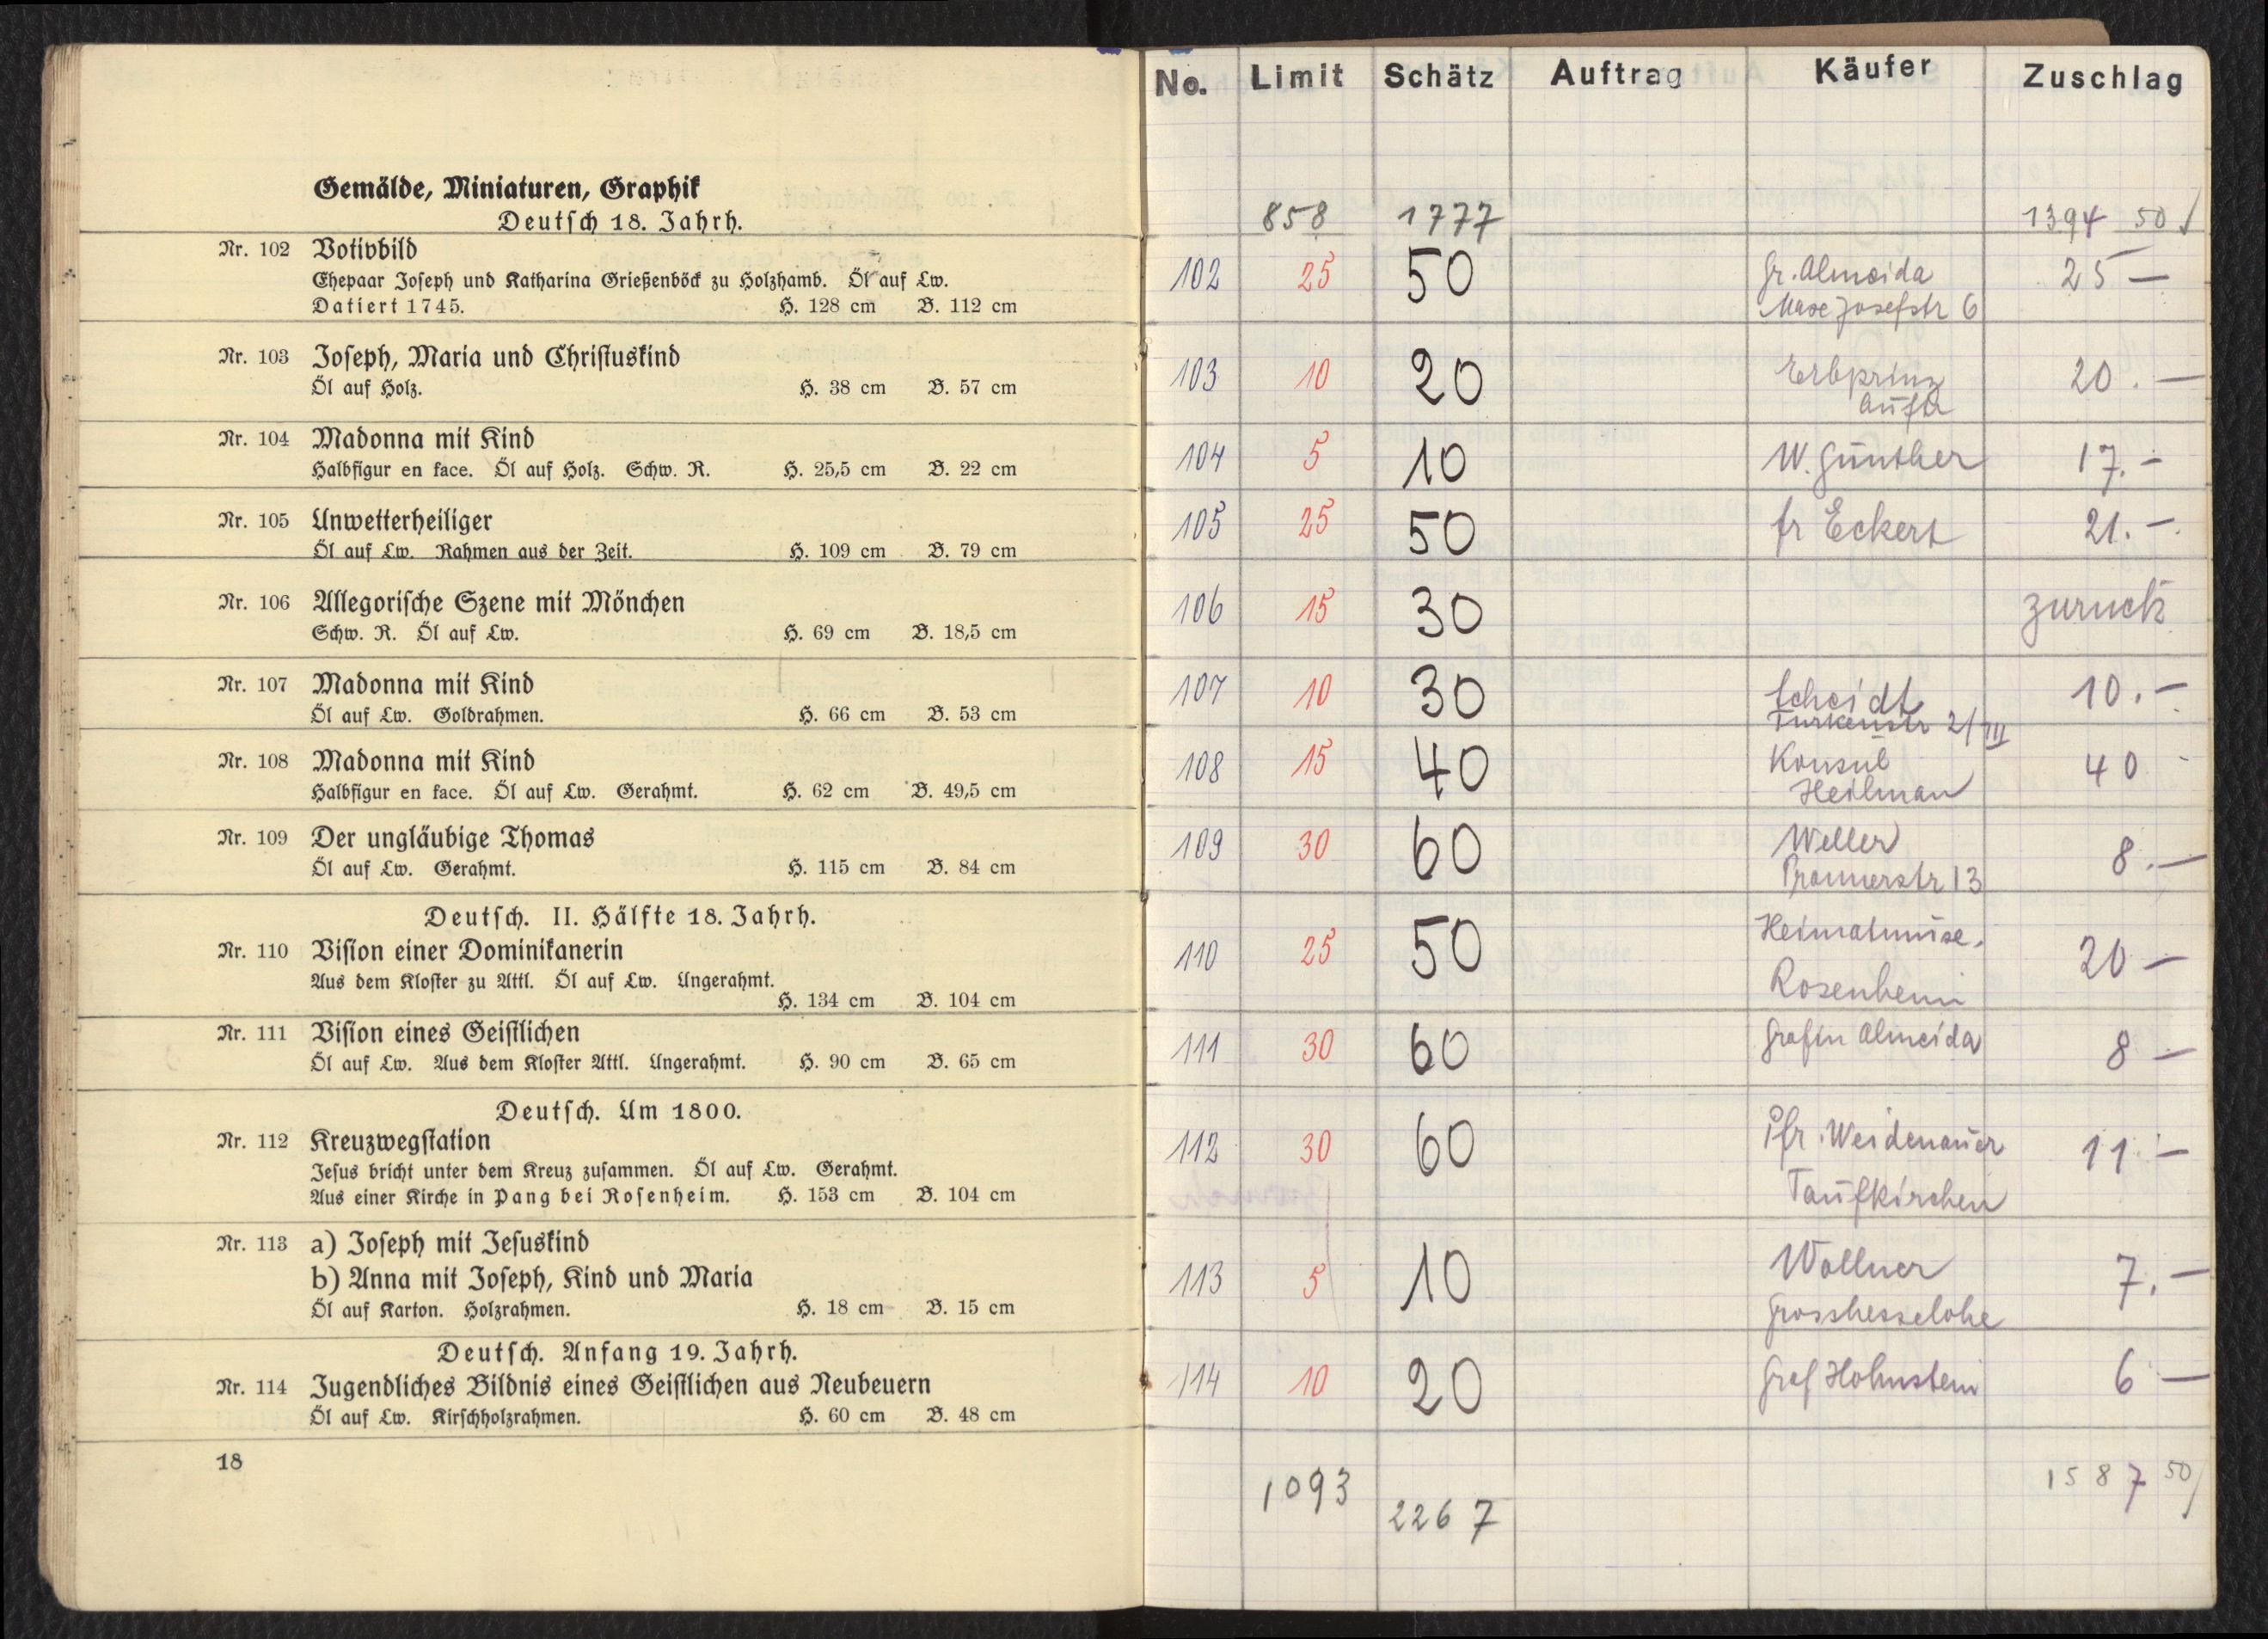 Gemälde, Miniaturen, Graphik
Deutsch 18. Jahrh.
Nr. 102 Votivbild
Ehepaar Joseph und Katharina Grießenböck zu Holzhamb. Öl auf Lw.
Datiert 1745. H. 128 cm B. 112 cm
Nr. 103 Joseph, Maria und Christuskind
Öl auf Holz. H. 38 cm B. 57 cm
Nr. 104 Madonna mit Kind
Halbfigur en face. Öl auf Holz. Schw. R. H. 25,5 cm B. 22 cm
Nr. 105 Unwetterheiliger
Öl auf Lw. Rahmen aus der Zeit. H. 109 cm B. 79 cm
Nr. 106 Allegorische Szene mit Mönchen
Schw. R. Öl auf Lw. H. 69 cm B. 18,5 cm
Nr. 107 Madonna mit Kind
Öl auf Lw. Goldrahmen. H. 66 cm B. 53 cm
Nr. 108 Madonna mit Kind
Halbfigur en face. Öl auf Lw. Gerahmt. H. 62 cm B. 49,5 cm
Nr. 109 Der ungläubige Thomas
Öl auf Lw. Gerahmt. H. 115 cm B. 84 cm
Deutsch. II. Hälfte 18. Jahrh.
Nr. 110 Vision einer Dominikanerin
Aus dem Kloster zu Attl. Öl auf Lw. Ungerahmt.
H. 134 cm B. 104 cm
Nr. 111 Vision eines Geistlichen
Öl auf Lw. Aus dem Kloster Attl. Ungerahmt. H. 90 cm B. 65 cm
Deutsch. Um 1800.
Nr. 112 Kreuzwegstation
Jesus bricht unter dem Kreuz zusammen. Öl auf Lw. Gerahmt.
Aus einer Kirche in Pang bei Rosenheim. H. 153 cm B. 104 cm
Nr. 113 a) Joseph mit Jesuskind
b) Anna mit Joseph, Kind und Maria
Öl auf Karton. Holzrahmen. H. 18 cm B. 15 cm
Deutsch. Anfang 19. Jahrh.
Nr. 114 Jugendliches Bildnis eines Geistlichen aus Neubeuern
Öl auf Lw. Kirschholzrahmen. H. 60 cm B. 48 cm
18
No. Limit Schätz Auftrag Käufer Zuschlag
858 1777 1394 50
102 25 50 Gr. Almeida 25 —
Max Josefstr 6
103 10 20 Erbprinz 20. —
Auftr
104 5 10 W. Günther 17. —
105 25 50 fr Eckert 21. —
106 15 30 zurück
107 10 30 Scheidt 10. —
Türkenstr 2/III
108 15 40 Konsul 40 -
Heilman
109 30 60 Weller 8. —
Prannerstr 13
110 25 50 Heimatmuse. 20 —
Rosenheim
111 30 60 Gräfin Almeida 8 —
112 30 60 Pfr. Weidenauer 11. —
Taufkirchen
113 5 10 Wollner 7. —
Grosshesselohe
114 10 20 Graf Holnstein 6 —
1093 2267 1587 50